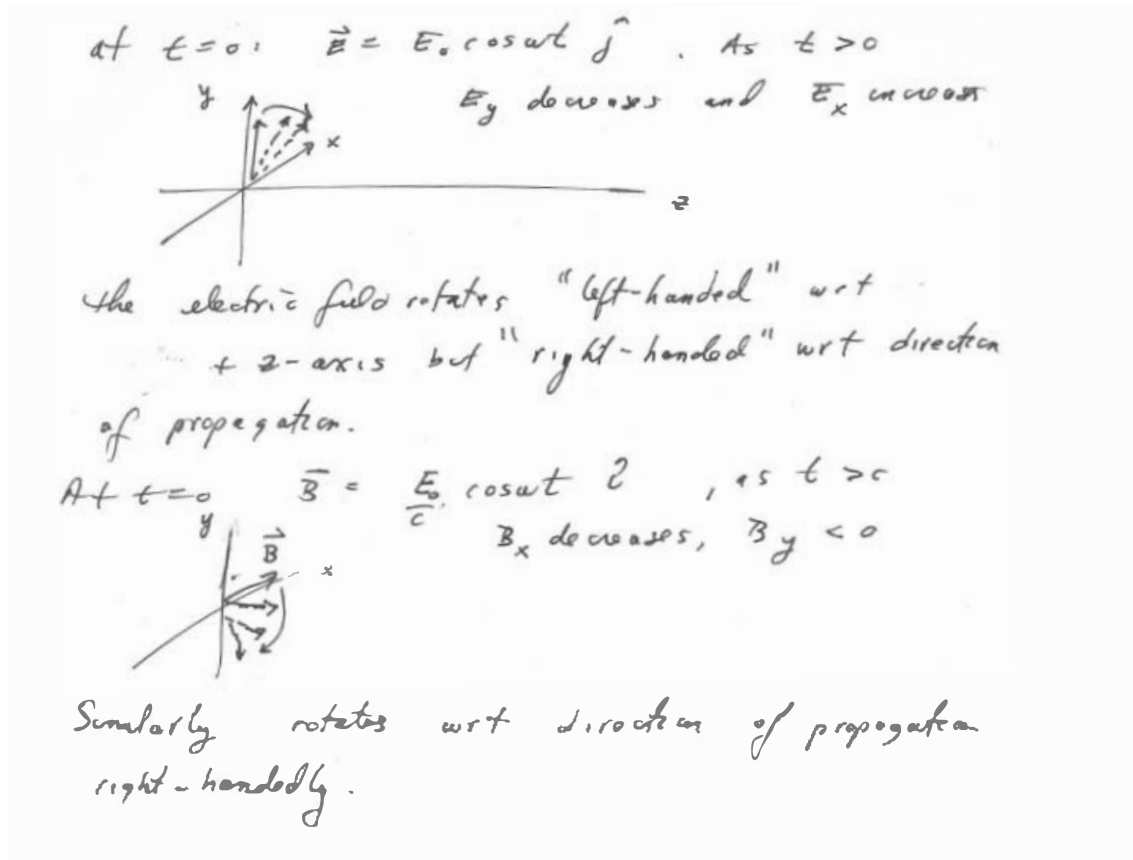 at t=0: E⃗ = E₀ cosωt ĵ . As t >0
y E_y decreases and E_x increases
x
z
the electric field rotates "left-handed" wrt
+ z-axis but "right-handed" wrt direction
of propagation.
At t=0 B⃗ = E₀/c cosωt î , as t >0
y B⃗ B_x decreases, B_y < 0
x
Similarly rotates wrt direction of propagation
right-handedly.